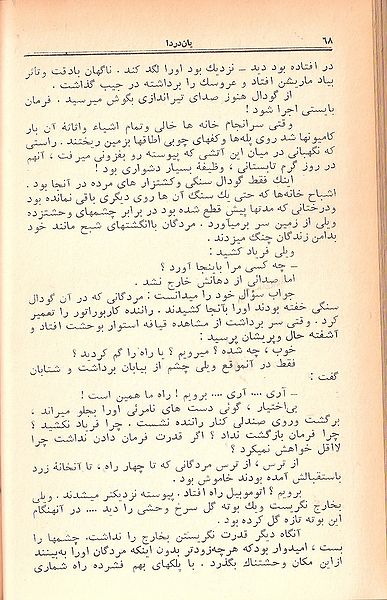 ۶۸
یان‌دردا
در افتاده بود دید ـ نزدیک بود اورا لگد کند . ناگهان بادقت وتأثر
بیاد ماریشن افتاد و عروسک را برداشته در جیب گذاشت .
از گودال هنوز صدای تیراندازی بگوش میرسید . فرمان
بایستی اجرا شود !
وقتی سرانجام خانه ها خالی وتمام اشیاء واثاثهٔ آن بار
کامیونها شد روی پله‌ها وکفهای چوبی اطاقها بنزین ریختند . راستی
که نگهبانی در میان این آتشی که پیوسته رو بفزونی میرفت ، آنهم
در روز گرم تابستانی ، وظیفهٔ بسیار دشواری بود !
اینک فقط گودال سنگی وکشتزار های مرده در آنجا بود .
اشباح خانه‌ها که حتی یک سنگ آن ها روی دیگری باقی نمانده بود
ودرختانی که مدتها پیش قطع شده بود در برابر چشمهای وحشتزده
ویلی از زمین سر برمیآورد . مردگان باانگشتهای شبح مانند خود
بدامن زندگان چنگ میزدند .
ویلی فریاد کشید :
ـ چه کسی مرا باینجا آورد ؟
اما صدائی از دهانش خارج نشد .
جواب سؤال خود را میدانست : مردگانی که در آن گودال
سنگی خفته بودند اورا بآنجا کشیدند . راننده کاربوراتور را تعمیر
کرد . وقتی سر برداشت از مشاهده قیافه استوار بوحشت افتاد و
آشفته حال وپریشان پرسید :
خوب ، چه شده ؟ میرویم ؟ یا راه را گم کردید ؟
فقط در آنموقع ویلی چشم از بیابان برداشت و شتابان
گفت :
ـ آری .... آری ... برویم ! راه ما همین است !
بی‌اختیار ، گوئی دست های نامرئی اورا بجلو میراند ،
برگشت وروی صندلی کنار راننده نشست . چرا فریاد نکشید ؟
چرا فرمان بازگشت نداد ؟ اگر قدرت فرمان دادن نداشت چرا
لااقل خواهش نمیکرد ؟
از ترس ، از ترس مردگانی که تا چهار راه ، تا آنخانهٔ زرد
باستقبالش آمده بودند خاموش بود .
برویم ؟ اتوموبیل راه افتاد . پیوسته نزدیکتر میشدند . ویلی
بخارج نگریست ویک بوته گل سرخ وحشی را دید .... در آنهنگام
این بوته تازه گل کرده بود .
آنگاه دیگر قدرت نگریستن بخارج را نداشت. چشمها را
بست ، امیدوار بودکه هرچه‌زودتر بدون اینکه مردگان اورا به‌بینند
ازاین مکان وحشتناک بگذرد . با پلکهای بهم فشرده راه شماری